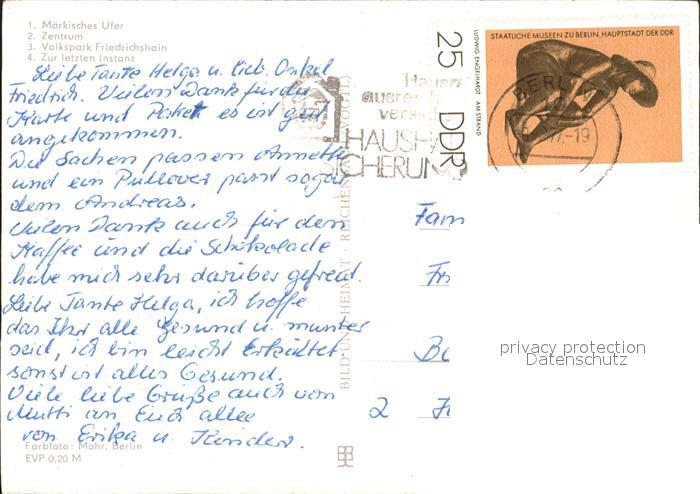 1. Märkisches Ufer
2. Zentrum
3. Volkspark Friedrichshain
4. Zur letzten Instanz
Liebe Tante Helga u. lieb. Onkel
Friedrich. Vielen Dank für die
Karte und Paket es ist gut
angekommen.
Die Sachen passen Annett
und ein Pullover passt sogar
dem Andreas.
Vielen Dank auch für den
Kaffee und die Schokolade
habe mich sehr darüber gefreut.
Liebe Tante Helga, ich hoffe
das Ihr alle Gesund u. munter
seid, ich bin leicht Erkältet
sonst ist alles Gesund.
Viele liebe Grüße auch von
Mutti an Euch alle
von Erika u. Kinder.
Farbfoto: Mohr, Berlin
EVP 0,20 M
BILD UND HEIMAT · REICHENBACH (VOGTL)
STAATLICHE MUSEEN ZU BERLIN, HAUPTSTADT DER DDR
LUDWIG ENGELHARDT AM STRAND
25 DDR
BERLIN
-19
Fam
Fr
2
privacy protection
Datenschutz